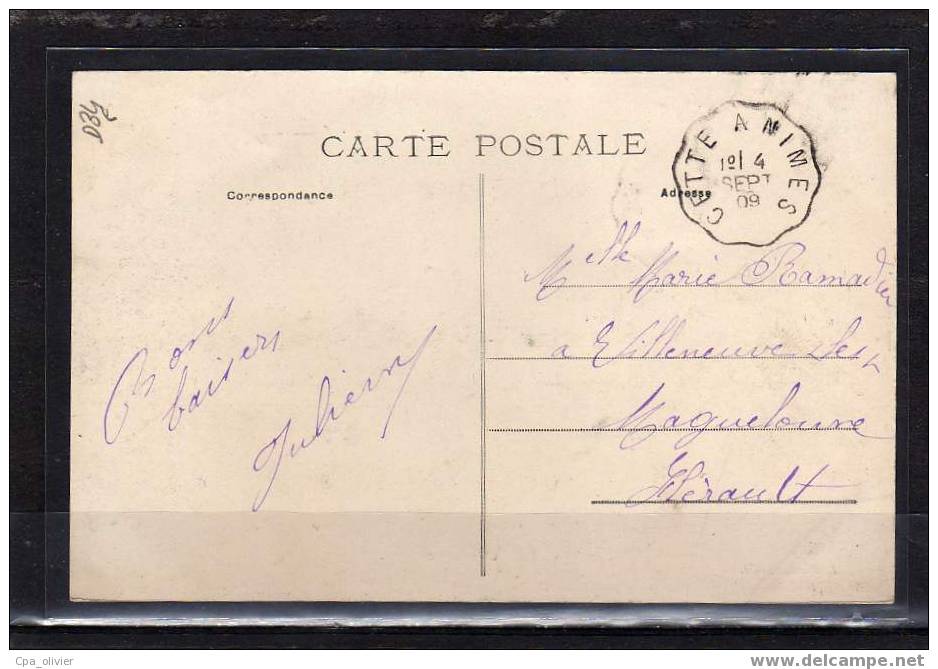 D34
CARTE POSTALE
Correspondance
Adresse
CETTE A NIMES
1º 4
SEPT
09
Mlle Marie Ramadier
à Villeneuve-les-
Maguelonne
Hérault
Bons
baisers
Julien
Cpa_olivier
delcampe.net